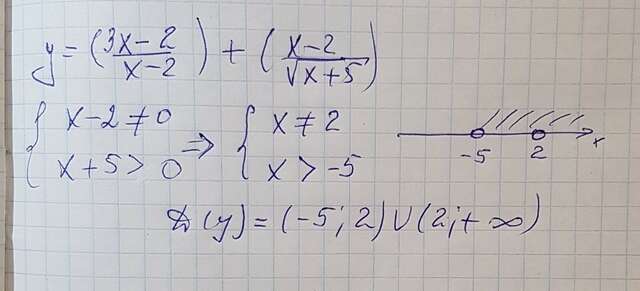 y = (3x-2 / x-2) + (x-2 / √x+5)
{ x-2≠0 ⇒ { x≠2
{ x+5>0 { x>-5
-5 2 x
D(y) = (-5; 2) U (2; +∞)